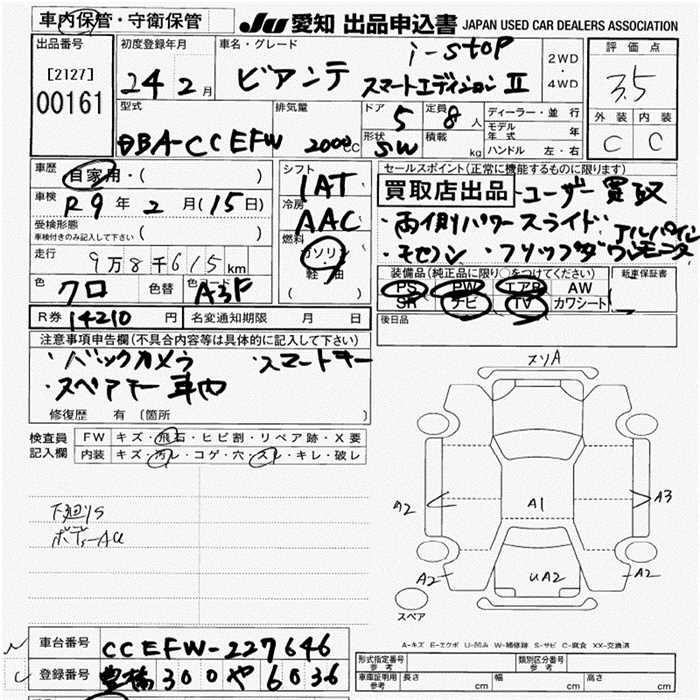 車内保管・守衛保管
JU 愛知 出品申込書 JAPAN USED CAR DEALERS ASSOCIATION
出品番号
[2127]
00161
初度登録年月
24 2 月
車名・グレード
i-stop
ビアンテ スマートエディションⅡ
2WD
・
4WD
評価点
3.5
外装 内装
C C
型式
DBA-CCEFW
排気量
2000cc
ドア 5
形状 SW
定員 8 人
積載 kg
ディーラー・並行
モデル年式 年
ハンドル 左・右
車歴
自家用・( )
車検
R9 年 2 月 (15日)
受検形態
車検付きのみ記入して下さい ( )
走行
9万8千615km
色 クロ 色替 A3F
R券 14210 円 名変通知期限 月 日
シフト
1AT
冷房
AAC
燃料
ガソリン
( 軽油 )
セールスポイント(正常に機能するものに限ります)
買取店出品 ユーザー買取
・両側パワースライド アルパイン
・モセコン ・フリップダウンモニター
装備品(純正品に限り○をつけてください) 新車保証書
PS PW エアB AW
SR ナビ TV カワシート
後日品
注意事項申告欄(不具合内容等は具体的に記入して下さい)
・バックカメラ ・スマートキー
・スペアキー車内
修復歴 有 (箇所 )
検査員記入欄
FW キズ・飛石・ヒビ割・リペア跡・X要
内装 キズ・汚レ・コゲ・穴・スレ・キレ・破レ
下廻りS
ボデーAU
スリA
A2 A1 A3
A2 UA2 A2
スペア
A-キズ E-エクボ U-凹み W-補修跡 S-サビ C-腐食 XX-交換済
車台番号 CCEFW-227646
登録番号 豊橋 300 や 6036
形式指定番号 参考 類別区分番号 参考
車庫証明用 参考 長さ cm 幅 cm 高さ cm